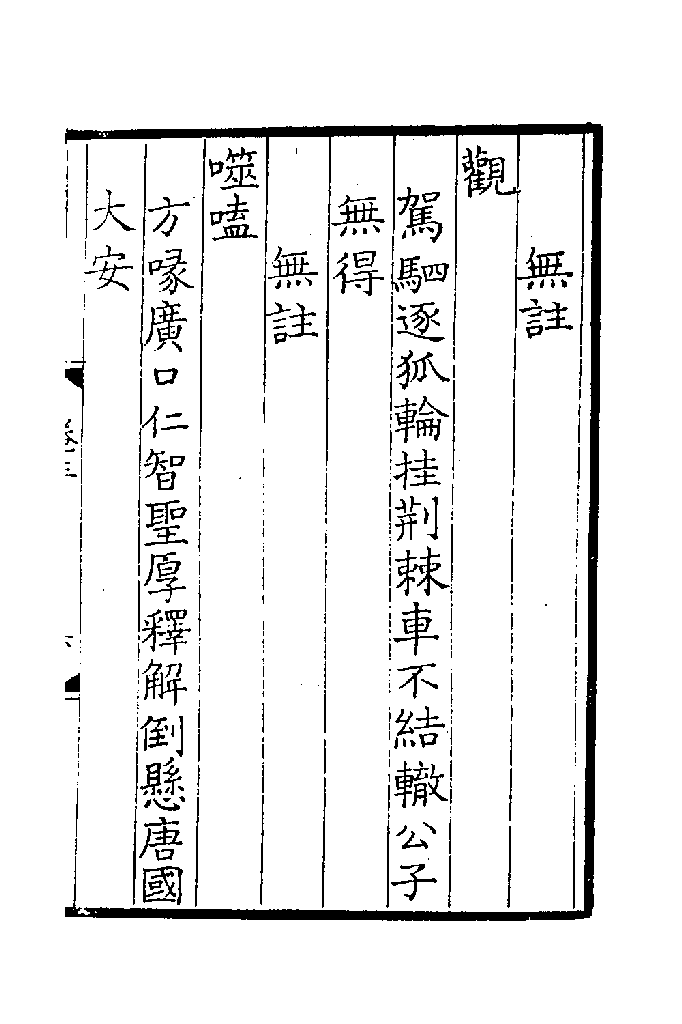 無註
觀
駕駟逐狐輪挂荆棘車不結轍公子
無得
無註
噬嗑
方喙廣口仁智聖厚釋解倒懸唐國
大安